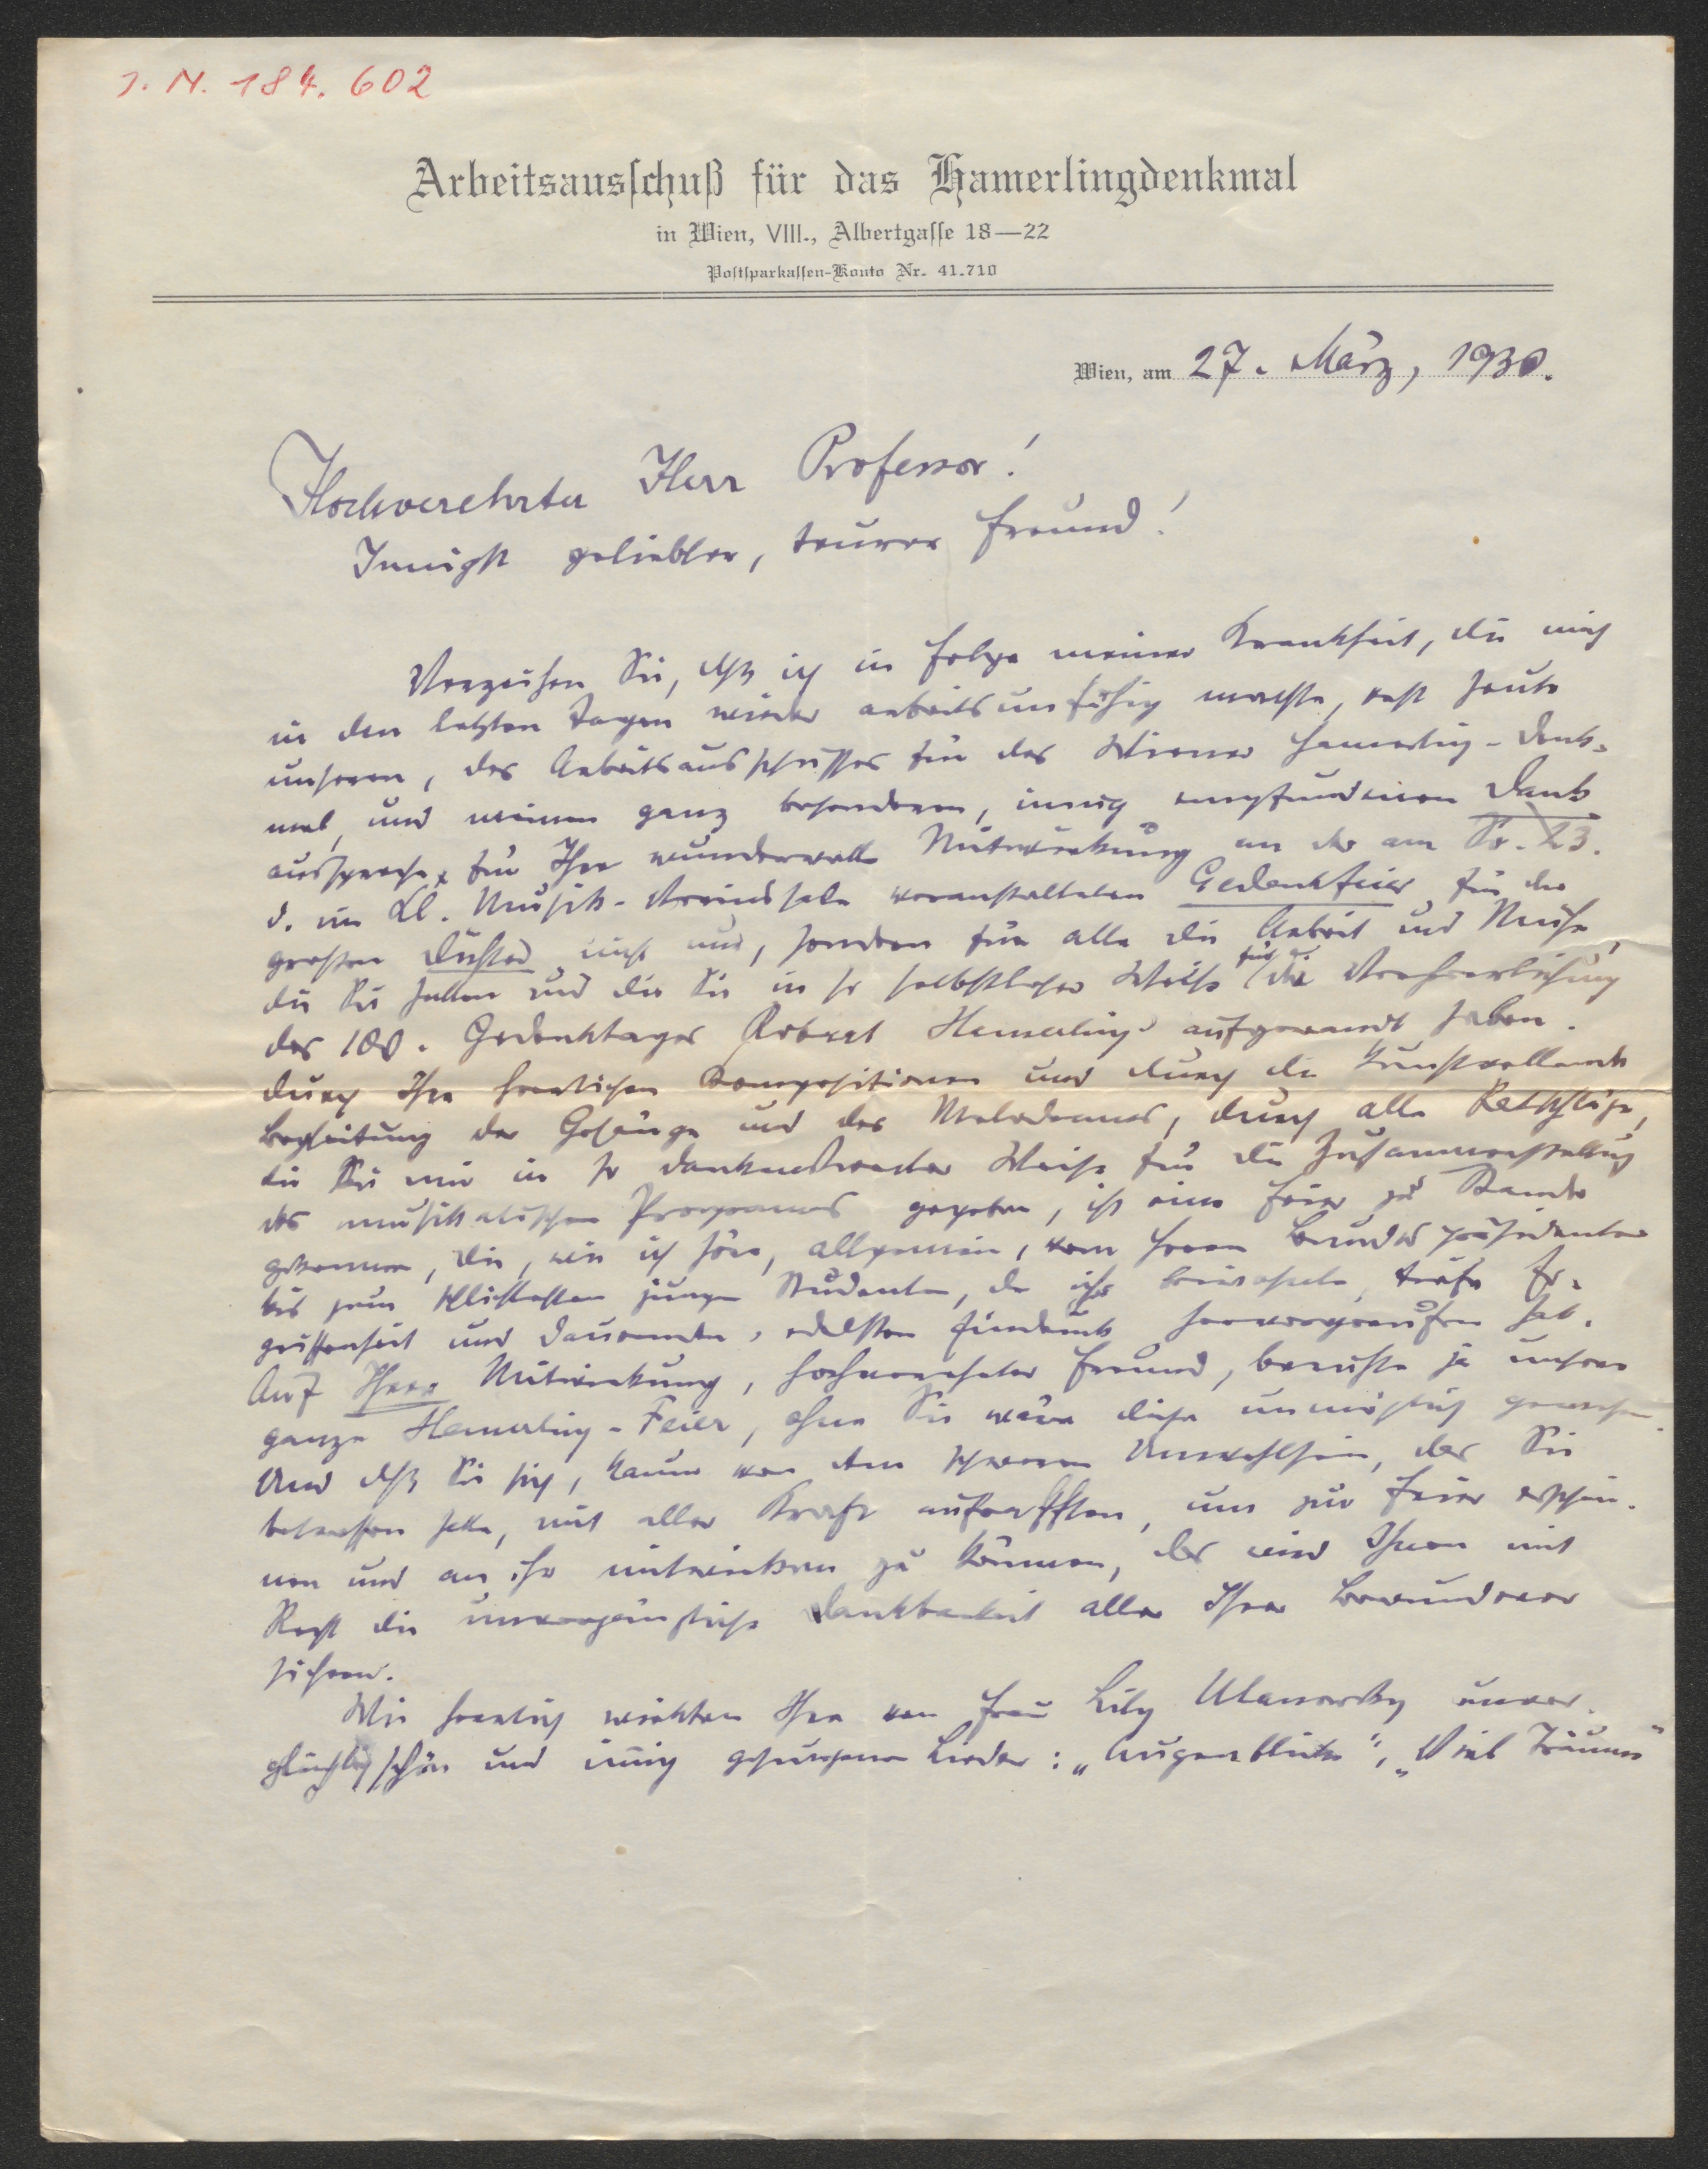 J. N. 184. 602
Arbeitsausschuß für das Hamerlingdenkmal
in Wien, VIII., Albertgasse 18—22
Postsparkassen-Konto Nr. 41.710
Wien, am 27. März, 1930.
Hochverehrter Herr Professor!
Innigst geliebter, teurer Freund!
Verzeihen Sie, dß ich in Folge meiner Krankheit, die mich
in den letzten Tagen wieder arbeitsunfähig machte, erst heute
unseren, des Arbeitsausschusses für das Wiener Hamerling-Denk-
mal, und meinen ganz besonderen, innig empfundenen Dank
ausspreche, für Ihre wundervolle Mitwirkung an der am So. 23.
d. im Kl. Musik-Vereinssale veranstalteten Gedenkfeier für den
großen Dichter nicht nur, sondern für alle die Arbeit und Mühe,
die Sie hatten und die Sie in so selbstloser Weise für die Verherrlichung
des 100. Gedenktages Robert Hamerlings aufgewandt haben.
Durch Ihre herrlichen Kompositionen und durch die kunstvollendete
Begleitung der Gesänge und des Melodrams, durch alle Ratschläge,
die Sie mir in so dankenswerter Weise für die Zusammenstellung
des musikalischen Programms gegeben, ist eine Feier zu Stande
gekommen, die, wie ich höre, allgemein, vom Herrn Bundespräsidenten
bis zum schlichtesten jungen Studenten, der ihr beiwohnte, tiefe Er-
griffenheit und dauernden, edelsten Eindruck hervorgerufen hat.
Auf Ihrer Mitwirkung, hochverehrter Freund, beruhte ja unsere
ganze Hamerling-Feier, ohne Sie wäre diese unmöglich gewesen.
Und dß Sie sich, kaum von dem schweren Unwohlsein, das Sie
betroffen hatte, mit aller Kraft aufrafften, um zur Feier erschei-
nen und an ihr mitwirken zu können, das wird Ihnen mit
Recht die unvergängliche Dankbarkeit aller Ihrer Bewunderer
sichern.
Wie herrlich wirkten Ihre von Frau Lily Ulanowsky unver-
gleichlich schön und innig gesungenen Lieder: „Augenblicke", „Viel Träume"